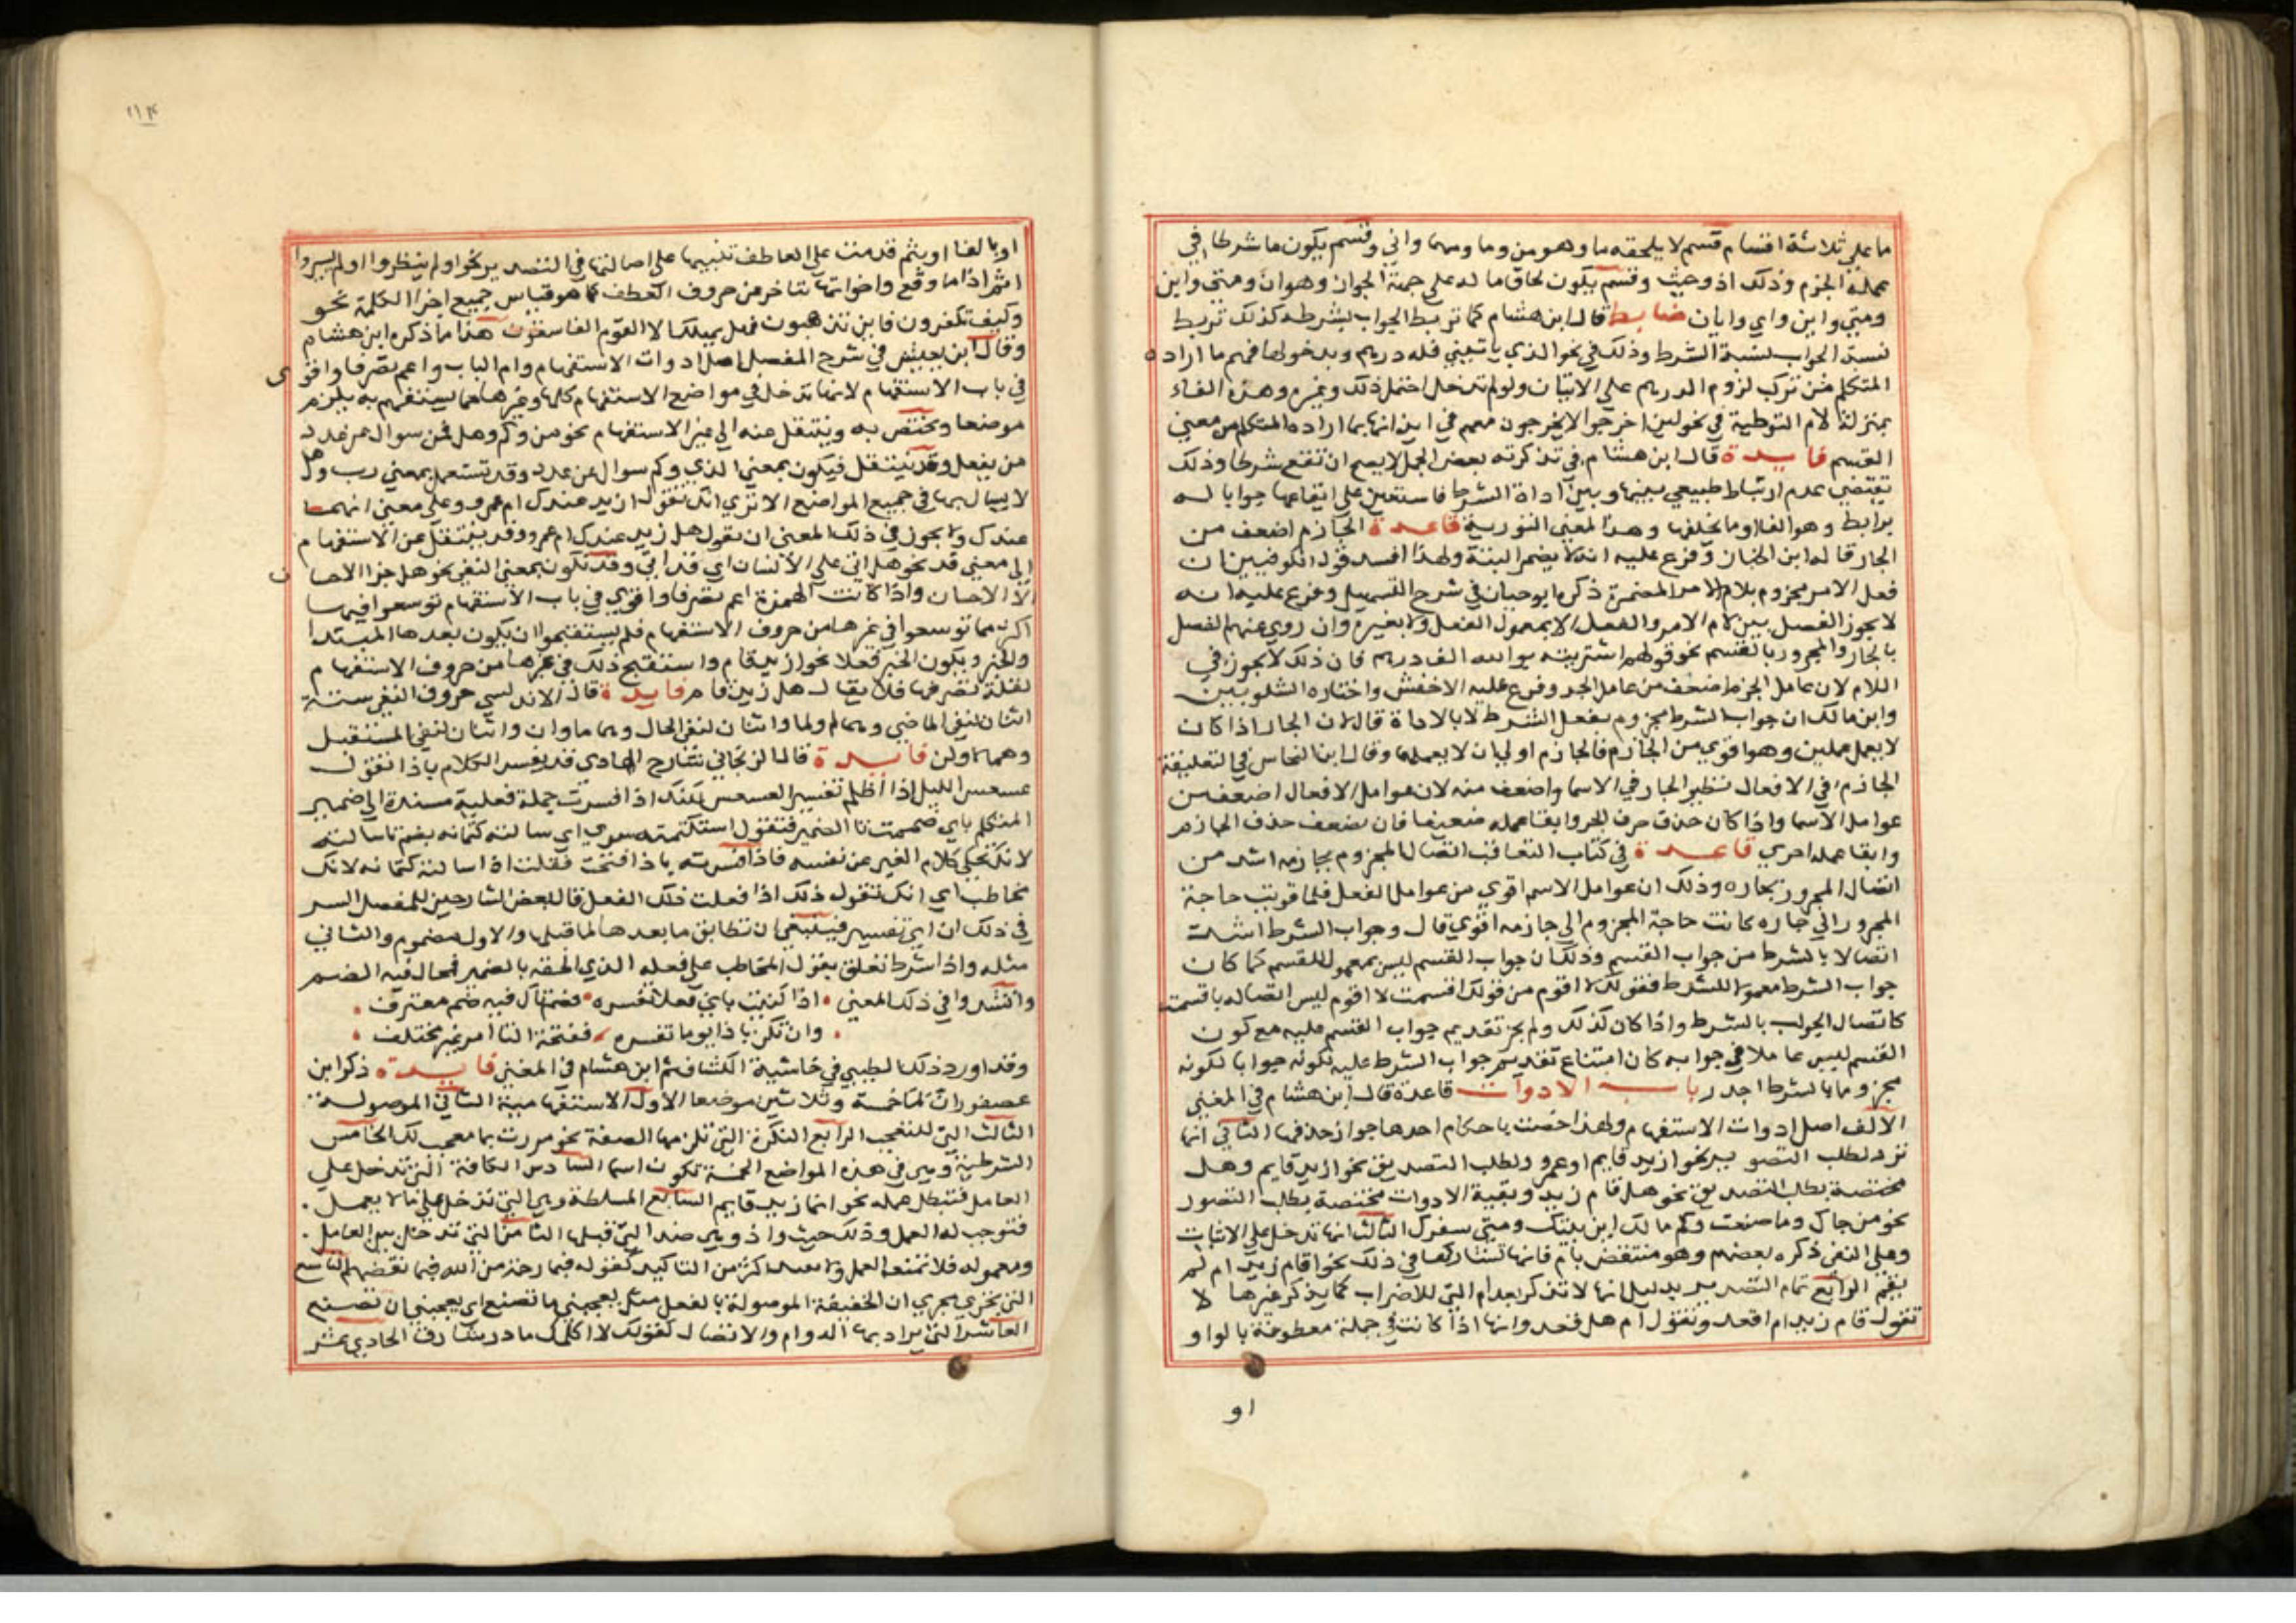 ما على ثلاثة اقسام قسم لا يلحقه ما وهو من وما ومهما واني وقسم يكون ما شرطا في
عمله الجزم وذلك اذ وحيث وقسم يكون لحاق ما له على جهة الجواز وهو ان ومتى واين
ومتى واين واي وايان ضابط قال ابن هشام كما تربط الجواب بشرطه كذلك تربط
شبه الجواب بشبه الشرط وذلك في نحو الذي ياتيني فله درهم وبدخولها فهم ما اراده
المتكلم من ترتب لزوم الدرهم على الاتيان ولو لم تدخل احتمل ذلك وغيره وهذه الفاء
بمنزلة لام التوطية في نحو لين اخرجوا لا يخرجون معهم في ايذانها بما اراده المتكلم من معنى
القسم فايدة قال ابن هشام في تذكرته بعض الجمل لا يصح ان تقع شرطا وذلك
يقتضي عدم ارتباط طبيعي بينها وبين اداة الشرط فاستعين على ايقاعها جوابا له
برابط وهو الفا او ما يخلفها وهذا معنى قاعدة الجازم اضعف من
الجار قاله ابن الخباز وفرع عليه انه لا يضمر البتة ولهذا افسد قول الكوفيين ان
فعل الامر مجزوم بلام الامر المضمرة ذكره ابو حيان في شرح التسهيل وفرع عليه انه
لا يجوز الفصل بين لام الامر والفعل لا بمعمول الفعل ولا بغيره وان روي عنهم الفصل
بالجار والمجرور بالقسم نحو قولهم اشتريته بو الله الف درهم فان ذلك لا يجوز في
اللام لان عامل الجزم اضعف من عامل الجر وفرع عليه الاخفش واختاره الشلوبين
وابن مالك ان جواب الشرط مجزوم بفعل الشرط لا بالاداة قال لان الجار اذا كان
لا يعمل عملين وهو اقوي من الجازم فالجازم اولى ان لا يعملها وقال ابن النحاس في التعليقة
الجازم في الافعال نظير الجار في الاسما واضعف منه لان عوامل الافعال اضعف من
عوامل الاسما واذا كان حذف حرف الجر وابقا عمله ضعيفا فان يضعف حذف الجازم
وابقا عمله احرى قاعدة في كتاب التعاقب اتصال المجزوم بجازمه اشد من
اتصال المجرور بجاره وذلك ان عوامل الاسم اقوي من عوامل الفعل فلما قويت حاجة
المجرور الى جاره كانت حاجة المجزوم الى جازمه اقوي قال وجواب الشرط اشد
اتصالا بالشرط من جواب القسم وذلك ان جواب القسم ليس بمعمول للقسم كما كان
جواب الشرط معمولا للشرط فقولك لا اقوم من قولك اقسمت لا اقوم ليس اتصاله باقسمت
كاتصال الجواب بالشرط واذا كان كذلك ولم يجز تقديم جواب القسم عليه مع كون
القسم ليس عاملا في جوابه كان امتناع تقديم جواب الشرط عليه لكونه جوابا لكونه
مجزوما بالشرط اجدر باب الادوات قاعدة قال ابن هشام في المغني
الالف اصل ادوات الاستفهام ولهذا خصت باحكام احدها جواز حذفها الثاني انها
ترد لطلب التصور نحو ازيد قايم او عمرو ولطلب التصديق نحو ازيد قايم وهل
مختصة بطلب التصديق نحو هل قام زيد وبقية الادوات مختصة بطلب التصور
نحو من جاك وما صنعت وكم مالك اين بيتك ومتى سفرك الثالث انها تدخل على الاثبات
وعلى النفي ذكره بعضهم وهو منتقض بام فانها تشاركها في ذلك نحو اقام زيد ام لم
يقم الرابع تمام التصدير بدليل انها لا تذكر بعد ام التي للاضراب كما يذكر غيرها لا
تقول قام زيد ام اقعد وتقول ام هل قعد وانها اذا كانت في جملة معطوفة بالواو
او
٢١٤
او بالفا او بثم قدمت على العاطف تنبيها على اصالتها في التصدير نحو اولم ينظروا اولم يسيروا
اثم اذا ما وقع واخواتها تتاخر عن حروف العطف كما هو قياس جميع اجزا الكلمة نحو
وكيف تكفرون فاين تذهبون فهل يهلك الا القوم الفاسقون هذا ما ذكره ابن هشام
وقال ابن يعيش في شرح المفصل اصل ادوات الاستفهام وام الباب واعم تصرفا واقوى
في باب الاستفهام لانها تدخل في مواضع الاستفهام كلها وغيرها مما يستفهم به يلزم
موضعا ويختص به وينتقل عنه الى غير الاستفهام نحو من وكم وهل فمن سوال عمن
من يعقل وقد ينتقل فيكون بمعنى الذي وكم سوال عن عدد وقد تستعمل بمعنى رب وهل
لا يسال بها في جميع المواضع الا ترى انك تقول ازيد عندك ام عمرو وعلى معنى ايهما
عندك ولا يجوز في ذلك المعنى ان تقول هل زيد عندك ام عمرو وقد ينتقل عن الاستفهام
الى معنى قد نحو هل اتى على الانسان اي قد اتى وقد تكون بمعنى النفي نحو هل جزا الاحسان
الا الاحسان واذا كانت الهمزة اعم تصرفا واقوى في باب الاستفهام توسعوا فيها
اكثر مما توسعوا في غيرها من حروف الاستفهام فلم يستقبحوا ان يكون بعدها المبتدا
والخبر ويكون الخبر فعلا نحو ازيد قام واستقبح ذلك في غيرها من حروف الاستفهام
لقلة تصرفها فلا يقال هل زيد قام فايدة قال الاندلسي حروف النفي ستة
اثنان لنفي الماضي وهما لم ولما واثنان لنفي الحال وهما ما وان واثنان لنفي المستقبل
وهما لا ولن فايدة قال الزنجاني شارح الهادي قد يفسر الكلام باذا تقول
عسعس الليل اذا اظلم تفسير العسعس لكنك اذا فسرت جملة فعلية مسندة الى ضمير
المتكلم باي ضممت تا الضمير فتقول استكتمته سري اي سالته كتمانه بضم تا سالته
لانك تحكي كلام الغير عن نفسه فاذا فسرته باذا فتحت فقلت اذا سالته كتمانه لانك
تخاطب اي انك تقول ذلك اذا فعلت ذلك الفعل قال بعض الشارحين للمفصل السر
في ذلك ان اي تفسير فينبغي ان تطابق ما بعدها لما قبلها والاول مضموم والثاني
مثله واذا شرط تعلق بقول المخاطب على فعله الذي الحقه بالضمير فمحال فيه الضم
وانشدوا في ذلك المعنى اذا كنيت باي فعلا تفسره فضم تاك فيه ضم معترف
وان تكن باذا يوما تفسره ففتحة التا امر غير مختلف
وقد اورد ذلك الطيبي في حاشية الكشاف ثم ابن هشام في المغني فايدة ذكر ابن
عصفور ان لما خمسة وثلاثين موضعا الاول الاستفهامية الثاني الموصولة
الثالث التي للتعجب الرابع النكرة التي تلزمها الصفة نحو مررت بما معجب لك الخامس
الشرطية وهي في هذه المواضع الخمسة تكون اسما السادس الكافة التي تدخل على
العامل فتبطل عمله نحو انما زيد قايم السابع المسلطة وهي التي تدخل على ما لا يعمل
فتوجب له العمل وذلك حيث واذ وهي ضد التي قبلها الثامن التي تدخل بين العامل
ومعموله فلا تمنعه العمل ولا تفيد اكثر من التاكيد كقوله فبما رحمة من الله فبما نقضهم التاسع
التي تجري مجرى ان الخفيفة الموصولة بالفعل مثل يعجبني ما تصنع اي يعجبني ان تصنع
العاشر التي يراد بها الدوام والاتصال كقولك لا اكلمك ما در شارق الحادي عشر